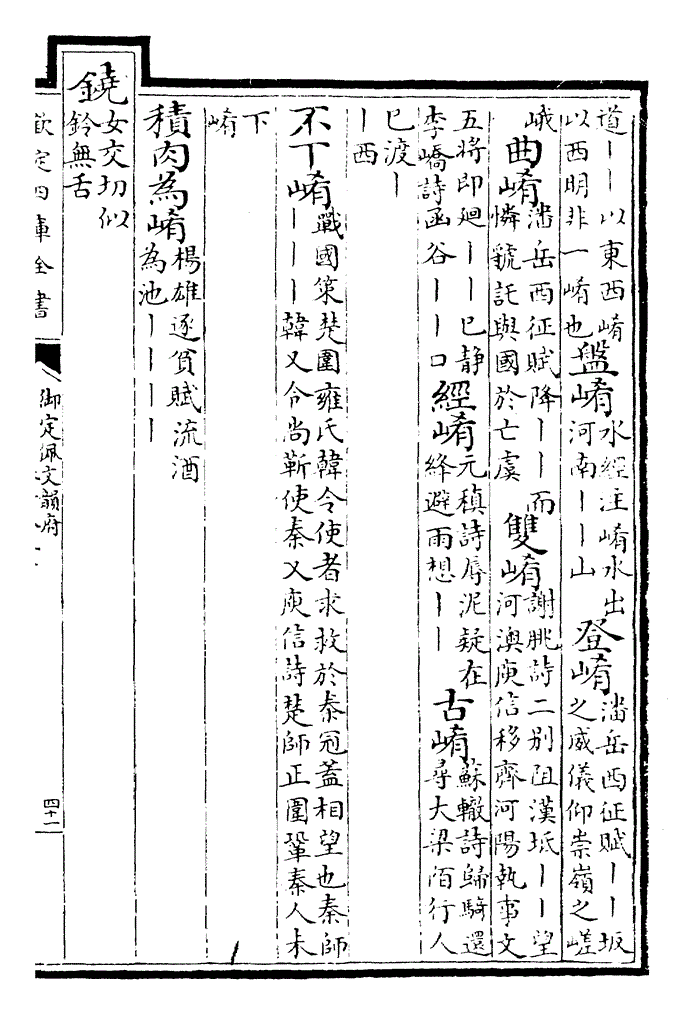 道丨丨以東西崤
以西明非一崤也
盤崤
水經注崤水出
河南丨丨山
登崤
潘岳西征賦丨丨坂
之威儀仰崇嶺之嵯
峨
曲崤
潘岳西征賦降丨丨而
憐虢託與國於亡虞
雙崤
謝朓詩二别阻漢坻丨丨望
河澳庾信移齊河陽執事文
五將即廻丨丨已静
李嶠詩函谷丨丨口
經崤
元稹詩辱泥疑在
絳避雨想丨丨
古崤
蘇轍詩歸騎還
尋大梁陌行人
已渡丨
丨西
不下崤
戰國策楚圍雍氏韓令使者求救於秦冠蓋相望也秦師
丨丨丨韓又令尚靳使秦又庾信詩楚師正圍鞏秦人未
下
崤
積肉為崤
楊雄逐貧賦流酒
為池丨丨丨丨
鐃
女交切似
鈴無舌
欽定四庫全書
御定佩文韻府
四十一